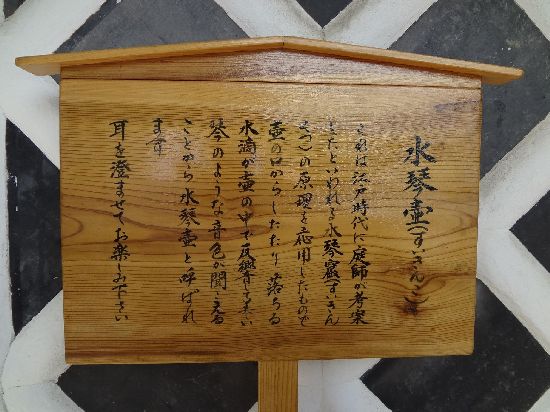 水琴壷(すいきんこ)
これは江戸時代に庭師が考案
したといわれる水琴窟(すいきん
くつ)の原理を応用したもので
壷の口からしたたり落ちる
水滴が壷の中で反響して美しい
琴のような音色が聞こえる
ことから水琴壷と呼ばれ
ます
耳を澄ませてお楽しみ下さい